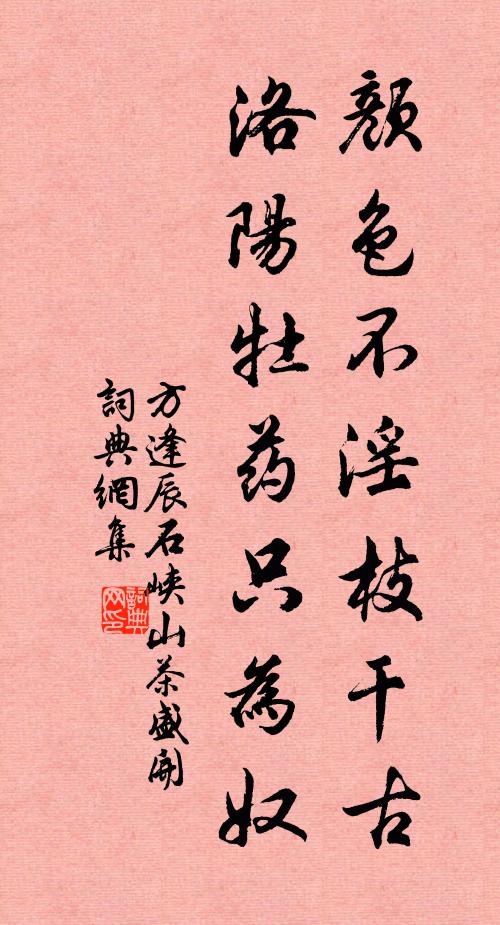 顏色不淫枝干古
洛陽牡药只為奴
方逢辰石峡山茶盛開
詞典網集
詞典网印